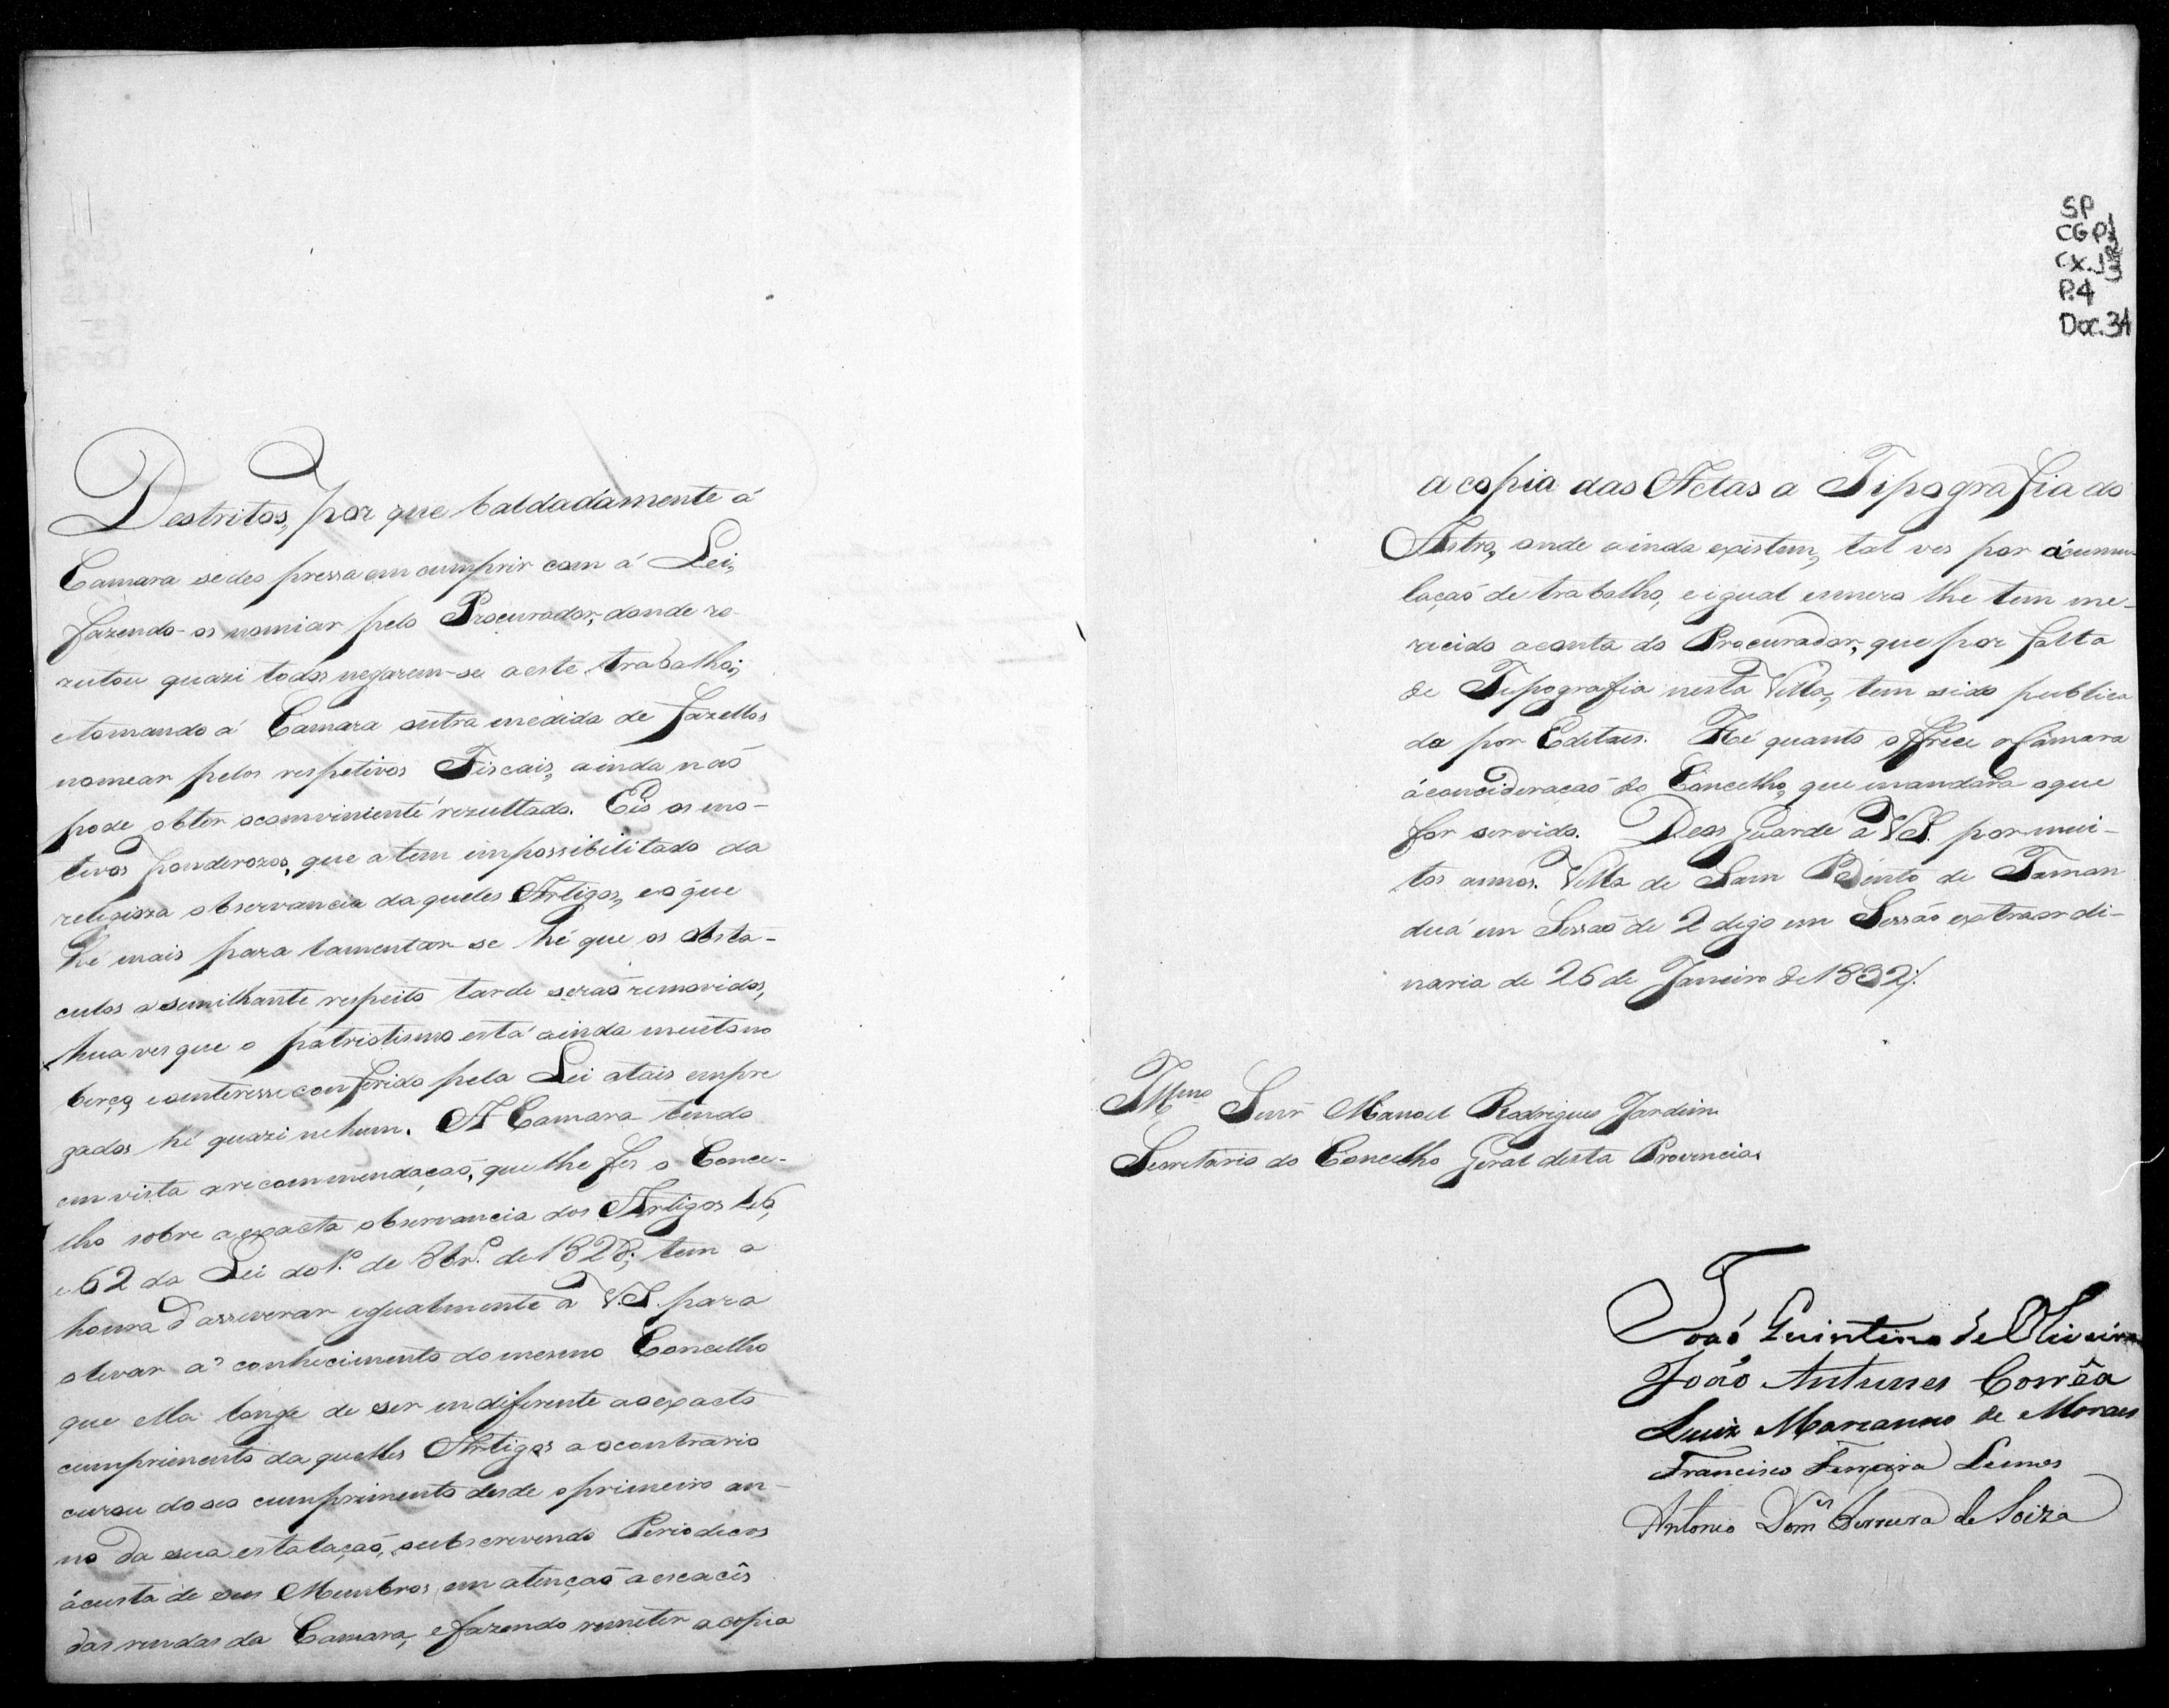 Destritos, por que baldadamente á
Camara sedes pressa em cumprir com á Lei,
fazendo-os nomiar pelo Procurador, donde re-
zutou quazi todos negarem-se a este trabalho;
etomando á Camara outra medida de fazellos
nomear pelos respetivos Fiscais, ainda naõ
pode obter oconviniente rezultado. Eis os mo-
tivos ponderozos, que atem impossibilitado da
religioza observancia daqueles Artigos, eoque
hé mais para lamentar-se hé que os obsta-
culos a semilhante respeito tarde seraõ removidos,
hua ves que o patriotismo está ainda muito no
berço, eointeresse conferido pela Lei atais empre
gados hé quazi nehum. A Camara tendo
em vista arecommendaçaõ, que lhe fes o Conce-
lho sobre aexacta observancia dos Artigos 46,
e 62 da Lei do 1º. de 8br.º de 1828, tem a
honra d'asseverar igualmente a V.S. para
olevar aº conhecimento do mesmo Concelho
que ella longe de ser indiferente aoexacto
cumprimento daquelles Artigos aocontrario
curou doseo cumprimento desde oprimeiro an-
no da sua estalaçaõ, subscrevendo Periodicos
ácusta de seus Membros, em atençaõ a escacês
das rendas da Camara, e fazendo remeter acopia
SP
CGP1
CX.
P.4
Doc.34
a copia das Actas a Tipografia do
Astro, onde ainda existem, tal ves por ácumu-
laçaõ de trabalho, eigual esmero lhe tem me-
recido aconta do Procurador, que por falta
de Tipografia nesta Villa, tem sido publica
da por Editaes. Hé quanto offrece a Câmara
áconcideraçaõ do Concelho, que mandará oque
for servido. Deos Guarde a V.S. por mui-
tos annos. Villa de Sam Bento de Taman
duá em Sessaõ de 2 digo em Sessaõ extraordi-
naria de 26 de Janeiro de 1832/.
Illmo Senr Manoel Rodrigues Jardim
Secretario do Concelho Geral desta Provincia.
Joaõ Quintino de Oliveira
João Antunes Corrêa
Luiz Marianno de Moraes
Francisco Ferreira Lemos
Antonio Dom.es Ferreira de Soiza